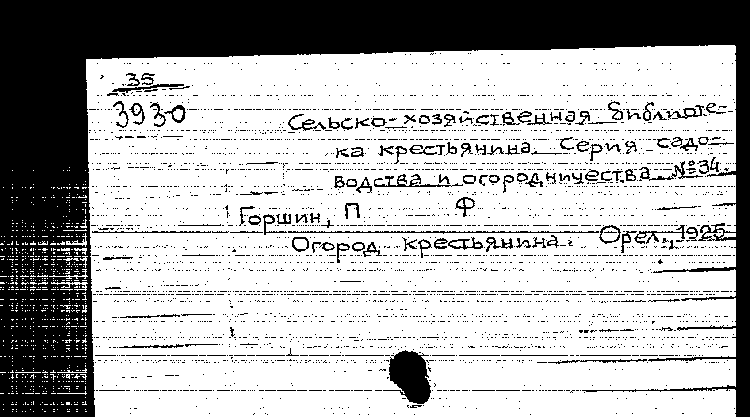 35
3930
Сельско-хозяйственная библиоте-
ка крестьянина. Серия садо-
водства и огородничества №34.
Горшин, П Ф
Огород крестьянина. Орел, 1925